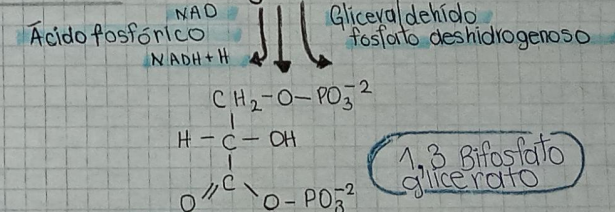 NAD
Ácido fosfórico
NADH+H
Gliceraldehido
fosfato deshidrogenoso
CH₂-O-PO₃⁻²
H-C-OH
O=C-O-PO₃⁻²
1.3 Bifosfato
glicerato